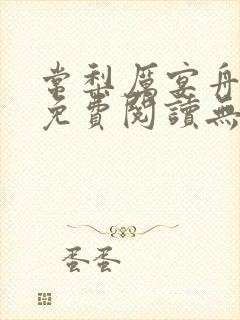 常梨厲宴舟
免費閱讀無
蛋蛋